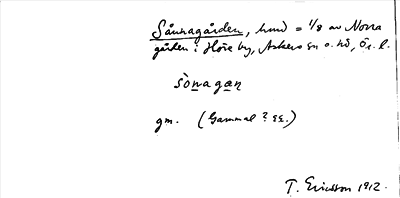 Sånnagården, hmd = 1/8 av Norra
gården i Höre by, Askers sn o. hd, Ör. l.
sònagan
gm. (Gammal? ss.)
T. Ericsson 1912.